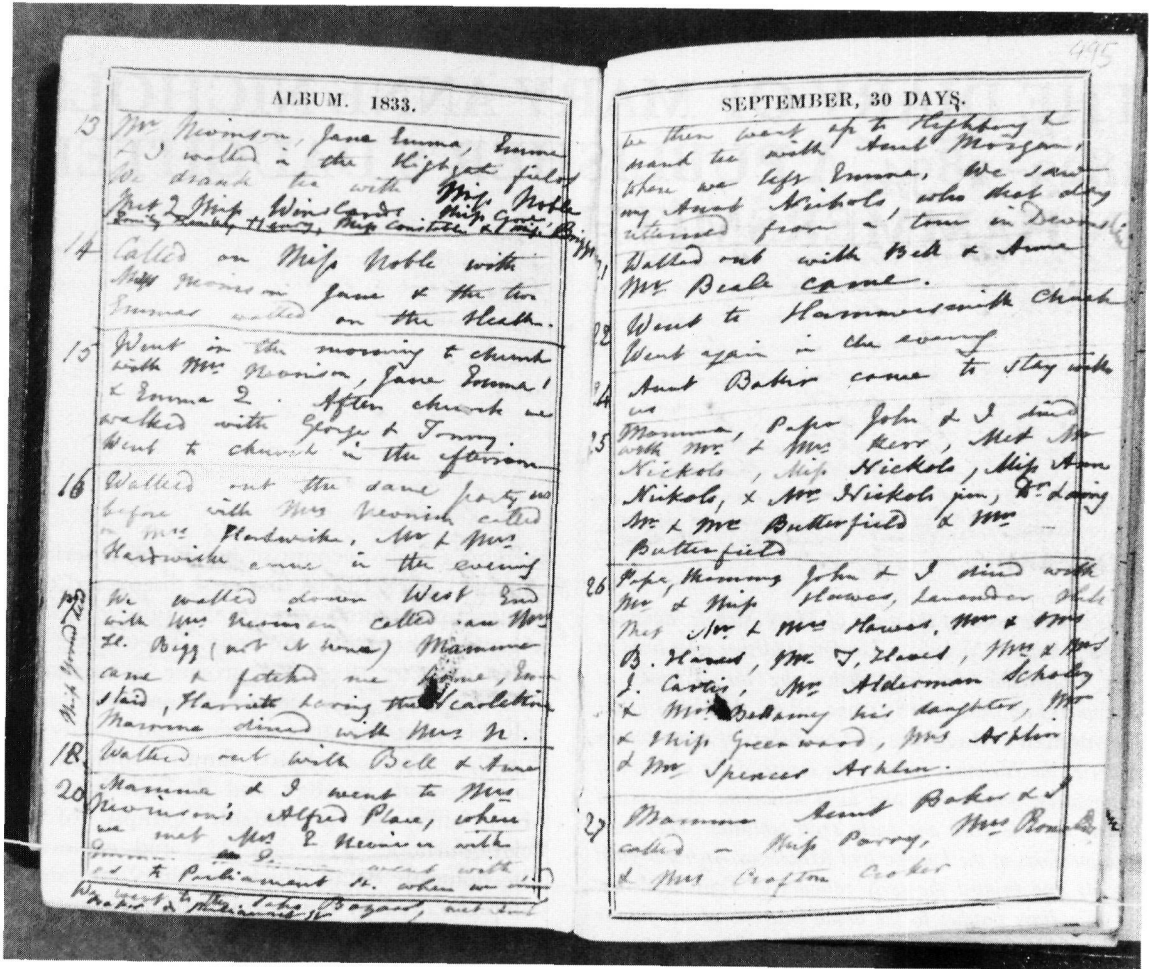 ALBUM. 1833.
13 Mr Nevinson, Jane Emma, Emma
& I walked in the Highgate fields
We drank tea with Miss Noble
Met 2 Miss Winslands Miss Gore,
Emily, Henry, Miss Constable & Miss Briggs
14 Called on Miss Noble with
Miss Nevinson Jane & the two
Emmas walked on the Heath.
15 Went in the morning to church
with Mrs Nevinson, Jane Emma 1
& Emma 2. After church we
walked with George & Tommy.
Went to church in the afternoon
16 Walked out the same party as
before with Mrs Nevinson called
on Mrs Hardwicke, Mr & Mrs
Hardwicke came in the evening
We walked down West End
with Mrs Nevinson called saw Mrs
H. Bigg (not at home) Mamma
came & fetched me home Emma
staid, Harriett having the Scarlettina
Mamma dined with Mrs N.
Miss Good died
18. Walked out with Bell & Anne
20 Mamma & I went to Mrs
Nevinson's Alfred Place, where
we met Mrs E Nevinson with
Emma. went with
us to Parliament St. where we
We went to the Soho Bazaar, met Aunt
Baker in Parliament St
495
SEPTEMBER, 30 DAYS.
We then went up to Highbury &
drank tea with Aunt Morgan,
where we left Emma. We saw
my Aunt Nickols, who that day
returned from a tour in Devonshire
21 Walked out with Bell & Anne
Mr Beale came.
22 Went to Hammersmith Church
Went again in the evening
24 Aunt Baker came to stay with
us
25 Mamma, Papa John & I dined
with Mr & Mrs Kerr, Met Mr
Nickols, Miss Nickols, Miss Ann
Nickols, & Mr Nickols jun, Dr Laing
Mr & Mrs Butterfield & Mrs
Butterfield
26 Papa, Mamma John & I dined with
Mr & Miss Hawes, Lavender Hill
Met Mr & Mrs Hawes, Mr & Mrs
B. Hawes, Mr T. Hawes, Mr & Mrs
J. Curtis, Mr Alderman Scholey
& Mrs Bellamy his daughter, Mr
& Miss Greenwood, Mrs Asplin
& Mr Spencer Asplin.
27 Mamma Aunt Baker & I
called on Miss Parry, Mrs Ronalds
& Mrs Crofton Croker